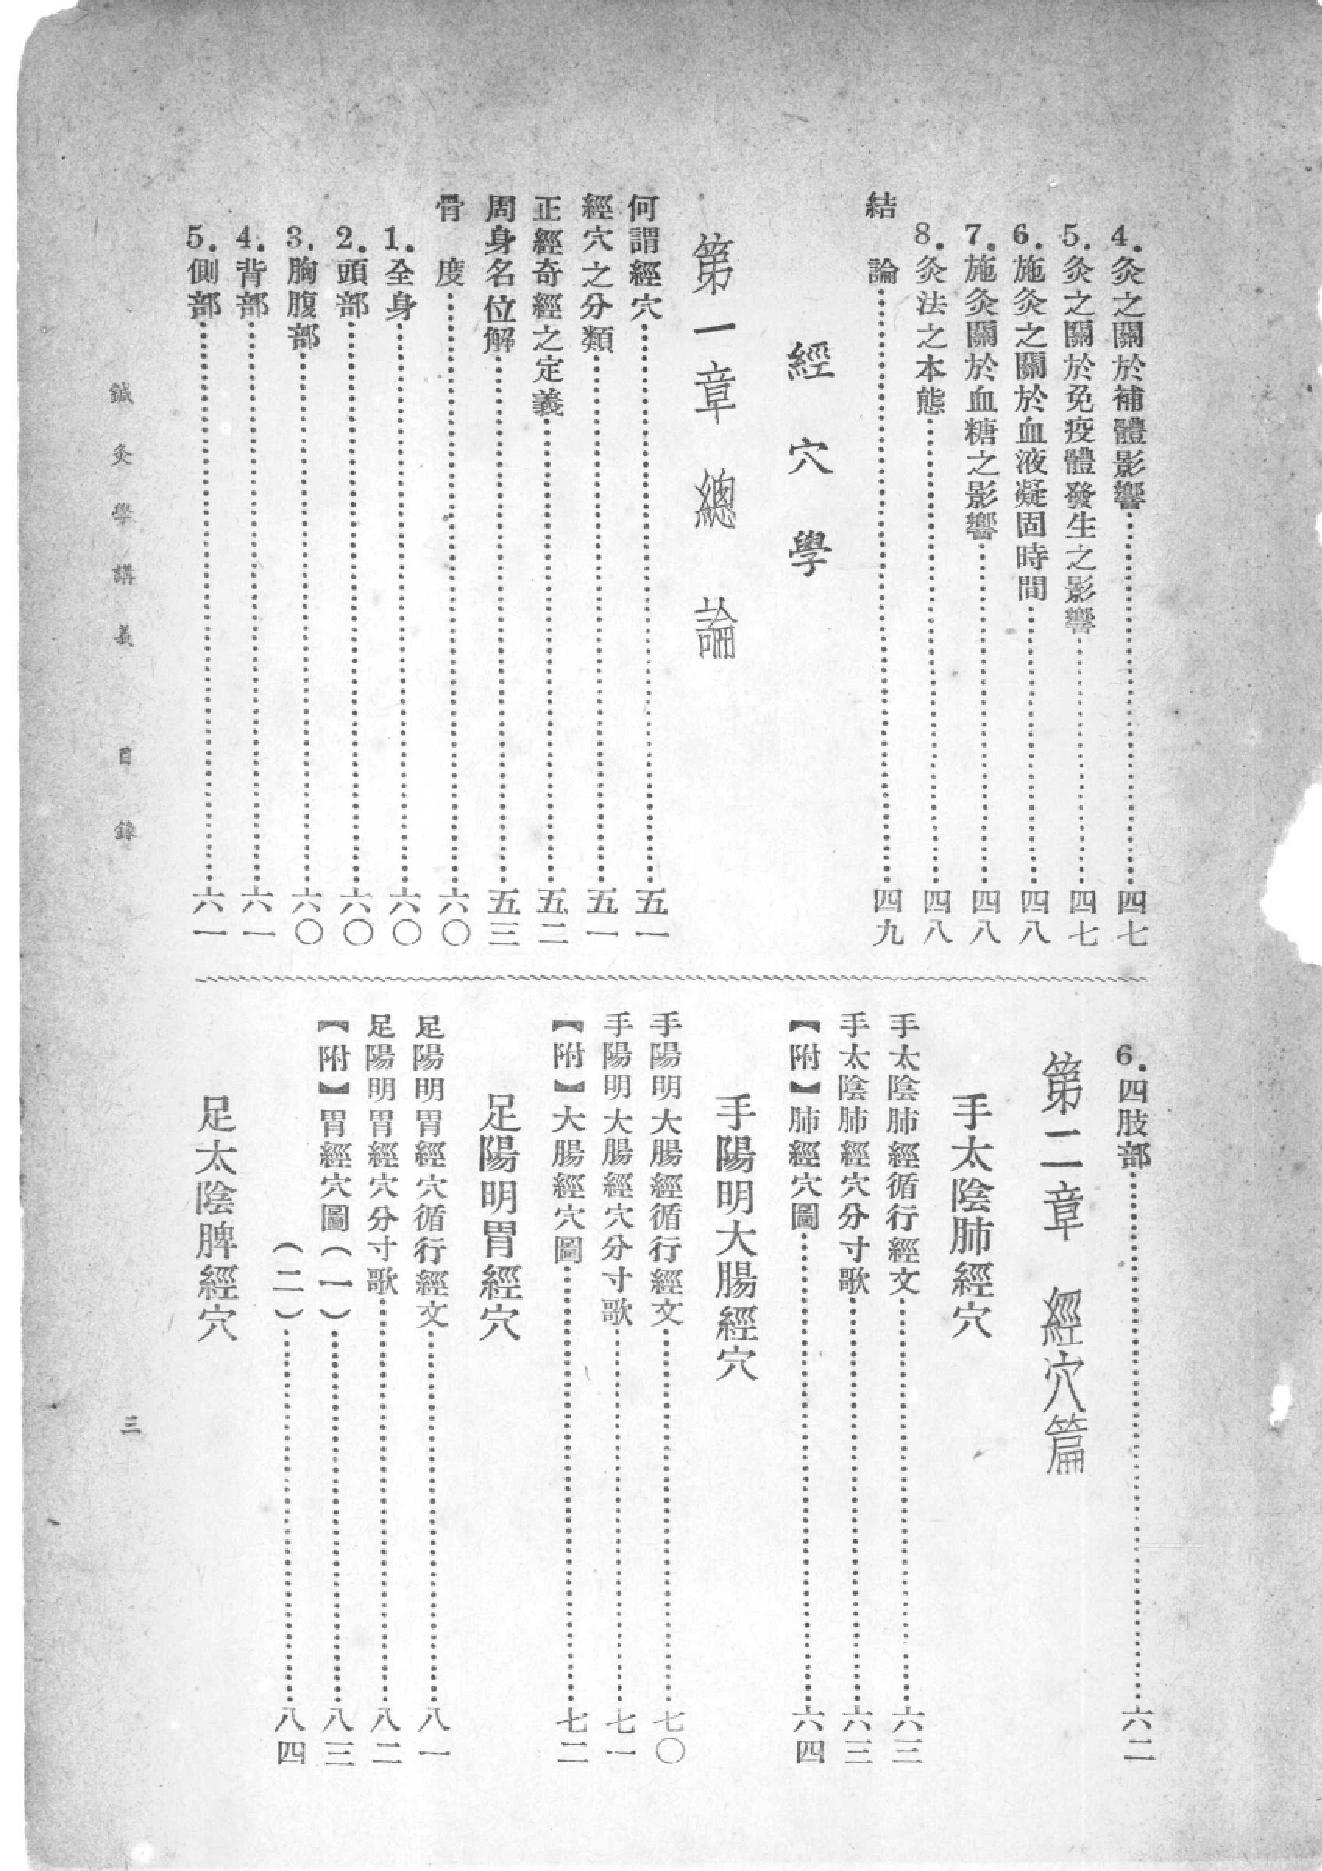 4.灸之關於補體影響……四七
5.灸之關於免疫體發生之影響……四七
6.施灸之關於血液凝固時間……四八
7.施灸關於血糖之影響……四八
8.灸法之本態……四八
結論……四九
經穴學
第一章 總論
何謂經穴……五一
經穴之分類……五一
正經奇經之定義……五二
周身名位解……五三
骨度……六〇
1.全身……六〇
2.頭部……六〇
3.胸腹部……六〇
4.背部……六一
5.側部……六一
6.四肢部……六二
第二章 經穴篇
手太陰肺經穴
手太陰肺經循行經文……六三
手太陰肺經穴分寸歌……六三
【附】肺經穴圖……六四
手陽明大腸經穴
手陽明大腸經循行經文……七〇
手陽明大腸經穴分寸歌……七一
【附】大腸經穴圖……七二
足陽明胃經穴
足陽明胃經穴循行經文……八一
足陽明胃經穴分寸歌……八二
【附】胃經穴圖(一)……八三
(二)……八四
足太陰脾經穴
鍼灸學講義 目錄
三